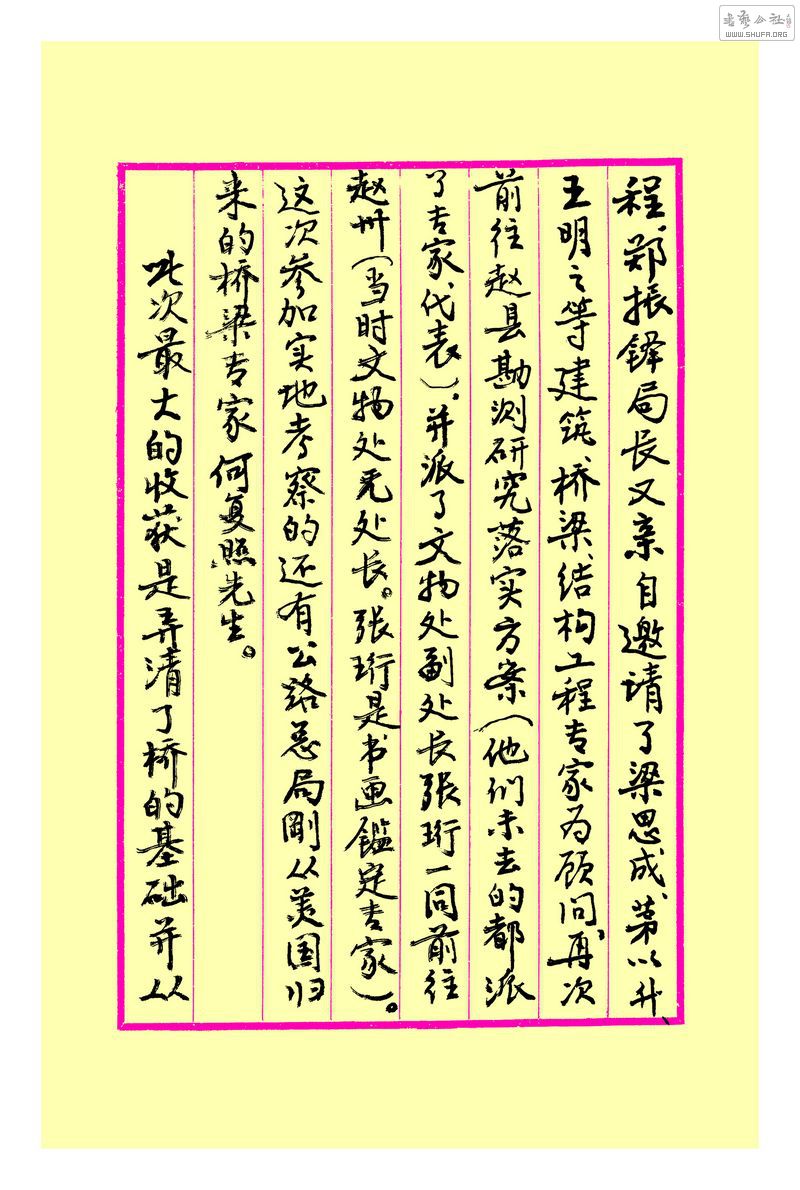 程、郑振铎局长又亲自邀请了梁思成、茅以升、
王明之等建筑、桥梁、结构工程专家为顾问、再次
前往赵县勘测研究落实方案(他们未去的都派
了专家、代表)、并派了文物处副处长张珩一同前往
赵州(当时文物处无处长。张珩是书画鉴定专家)。
这次参加实地考察的还有公路总局刚从美国归
来的桥梁专家何复照先生。
此次最大的收获是弄清了桥的基础并从
書藝公社
WWW.SHUFA.ORG